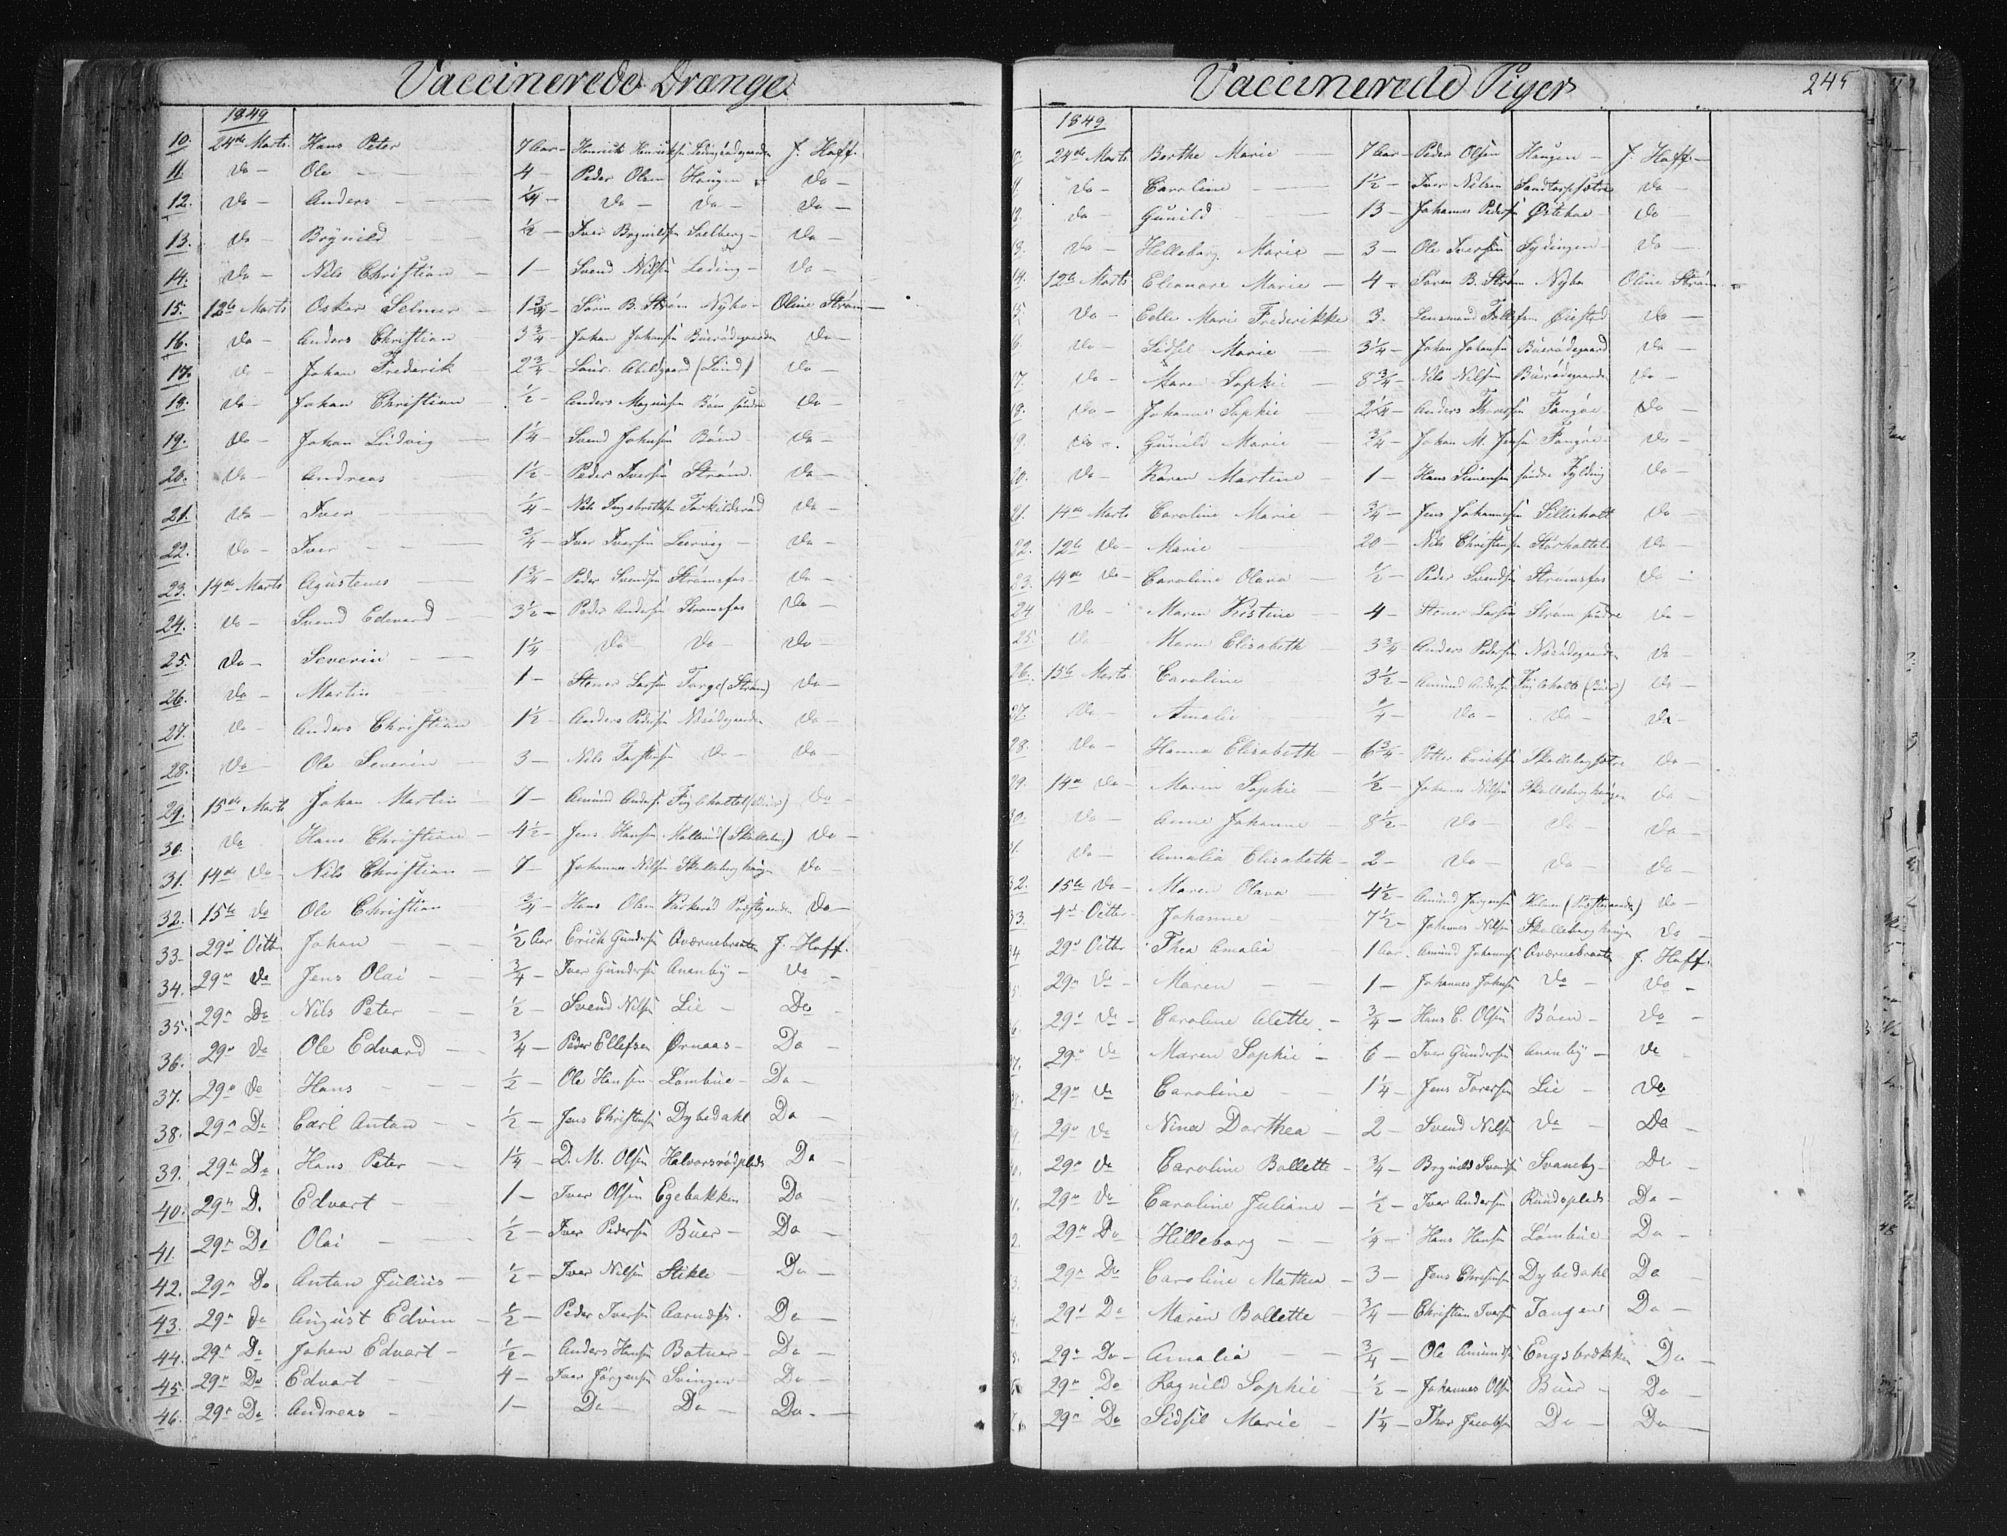 Vaccinerede Drænge
1849
10. 24de Marts Hans Peter 7 Aar - Henrik Henriksen J. Hoff.
11. do - Ole 4 - Peder Olsen Haugen do -
12. do - Anders 1/4 - do - do - do -
13. do - Brynild 1/2 - Iver Brynildsen Solberg - do -
14. do - Nils Christian 1 - Svend Nilsen Leding - do -
15. 12te Marts Oskar Selmer - 1 3/4 - Sören B. Ström Nybo - Oline Ström -
16. do - Anders Christian 3 3/4 - Johan Johansen Buerødgaarden do -
17. do - Johan Frederik 2 3/4 - Laur. Abildgaard (Lund) do -
18. do - Johan Christian 1/2 - Anders Magnusen Böen söndre do -
19. do - Johan Ludvig 1 1/4 - Svend Johnsen Böen - do -
20. do - Andreas 1 1/2 - Peder Iversen Ström. do -
21. do - Iver 1/4 - Nils Ingebrethsen Torkilderød do -
22. do - Iver 3/4 - Iver Iversen Leervig - do -
23. 14de Marts Agustenus 1 3/4 - Peder Svendsen Strömsfos - do -
24. do - Svend Edvard 3 1/2 - Peder Andersen Strömsfos do -
25. do - Severin 1 1/4 - do - do - do -
26. do - Martin 1 - Stener Larsen Torge (Ström) do -
27. do - Anders Christian 1 1/2 - Anders Pedersen do -
28. do - Ole Severin 3 - Nils Torstensen do - do -
29. 15de Marts Johan Martin 7 - Amund Andersen Fugleholtet (Buer) do -
30. do Hans Christian - 4 1/2 - Jens Hansen (Skalleberg) do -
31. 14de do - Nils Christian - 7 - Johannes Nilsen Skalleberghaugen do -
32. 15de do Ole Christian 3/4 - Hans Olsen Præstegaarden do -
33. 29d Octbr Johan 1/2 Aar Erich Gundersen Qværnebraaten J. Hoff.
34. 29n do Jens Olai 3/4 - Iver Gundersen Ananby - do -
35. 29n Do Nils Peter 1/2 - Svend Nilsen Lie - Do
36. 29n do Ole Edvard 3/4 - Peder Ellefsen Ørnaas - Do -
37. 29n do Hans 1/2 - Ole Hansen Lömbue - Do -
38. 29n Do Carl Anton 1/2 - Jens Christensen Dybedahl Do -
39. 29n Do Hans Peter 1 1/4 - D. M. Olsen Halvorsrødplads Do -
40. 29n D. Edvart 1 - Iver Olsen Egebakken Do
41. 29n Do Olai 1/2 - Iver Pedersen Buer - Do -
42. 29n Do Anton Julius 1/2 - Iver Nilsen Stikle - Do -
43. 29n do August Edvin - 1/2 - Peder Iversen Aarnæss. Do -
44. 29n Do Johan Edvart - 1/2 - Anders Hansen Botner - Do -
45. 29n Do Edvart 4 - Iver Jörgensen Svingen - Do -
46. 29n Do Andreas 1 - Do - Do - Do -
Vaccinerede Piger
245
1849
24de Marts Berthe Marie 7 Aar - Peder Olsen Haugen - J. Hoff -
do - Caroline 1 1/2 - Iver Nilsen Sandtorpsætre do -
do - Gunild 13 - Johannes Pedersen Østeboe - do -
do - Helleborg Marie - 3 - Ole Iversen Sydengen do -
14. 12te Marts Eleanore Marie - 4 - Sören B. Ström Nybo Oline Ström
15. do - Edle Marie Frederikke 3. Lensmand do -
do - Sidsil Marie 3 1/4 - Johan Johansen Buerødgaard do -
17. do - Maren Sophie 8 3/4 - Nils Nilsen Buerødgaarden do -
18. do - Johanne Sophie 2 1/4 - Anders Tangöe do -
19. do - Gunild Marie 3/4 - Johan M. Jensen Tangöe - do -
20. do - Karen Martine 1 - Hans Simensen söndre Fylding do
21. 14de Marts Caroline Marie 3/4 - Jens Johannesen Silleholt do -
22. 12te do - Marie 20 - Nils Christensen Storholtet do -
23. 14de do - Caroline Olava 1/2 - Peder Svendsen Strömsfos do -
24 do - Maren Kristine 4 - Stener Larsen Ström söndre do -
25. do Maren Elisabeth 3 3/4 Anders Pedersen do -
26. 15de Marts Caroline 3 1/2 - Amund Andersen Fugleholtet (Buer) do -
27 do - Amalie 1/4 - do - do - do -
28. do - Hanna Elisabeth - 6 3/4 - Petter Eriksen Skallebergsætre do -
29. 14de do - Maren Sophie 1/2 - Johannes Nilsen Skalleberghaugen do -
30. do - Anne Johanne 8 1/2 - do - do - do -
31. do - Amalia Elisabeth - 2 - do - do - do
32. 15de do - Maren Olava 4 1/2 - Amund Jörgensen do -
33. 4d Octbr Johanne 7 1/2 - Johannes Nilsen Skalleberghaugen do -
34 29n Octbr Thea Amalia 1 Aar. Amund Johannesen Qværnebraaten J. Hoff.
29n do - Maren 1 - Johannes Johnsen do do -
29n do - Caroline Alette - 3/4 - Hans C. Olsen Böen - do -
29n do Maren Sophie - 6 - Iver Gundersen Ananby - do
29n do Caroline 1 1/4 Jens Torersen Lie - do
29n do Nina Dorthea - 2 - Svend Nilsen do - Do
29n do Caroline Bollette - 3/4 - Brynild Svaneby - Do -
29n do Caroline Juliane - 1/2 - Iver Andersen Rundsplads Do -
29n Do Hilleborg 1/4 - Hans Hansen Lömbue Do -
29n Do Caroline Mathea - 3 - Jens Christensen Dybedahl Do
29d Do Maren Bollette 3/4 - Christian Iversen Tangen Do -
29n Do - Amalia 3/4 - Ole Amundsen Engsbrækken Do -
29n Do Ragnild Sophie - 1/2 - Johannes Olsen Buer - Do -
29n Do Sidsil Marie - 1 1/4 - Thor Jacobsen Do - Do -